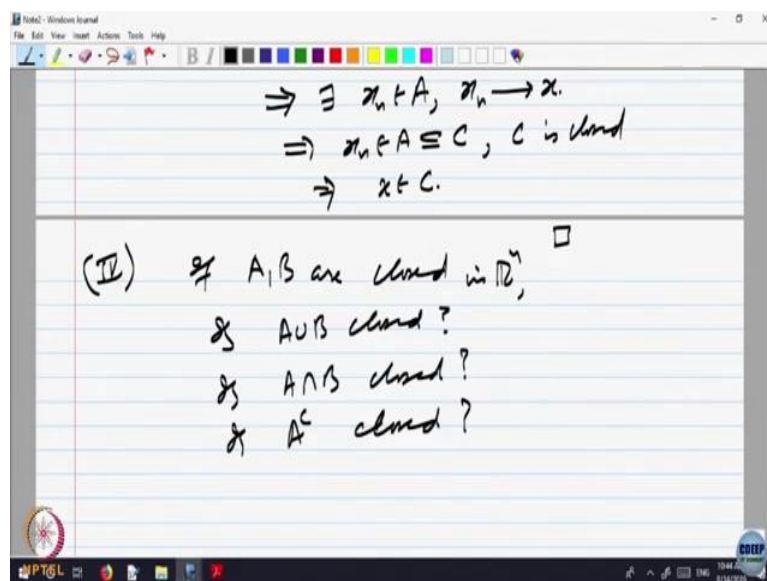 Note2 - Windows Journal
File Edit View Insert Actions Tools Help
B I
⇒ ∃ xₙ ∈ A, xₙ → x.
⇒ xₙ ∈ A ⊆ C, C is closed
⇒ x ∈ C.
□
(IV) If A, B are closed in ℝⁿ,
Is A∪B closed?
Is A∩B closed?
Is Aᶜ closed?
NPTEL
CDEEP